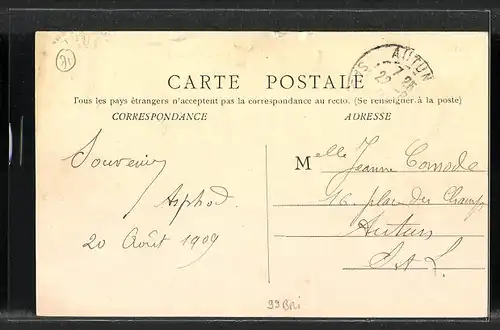 71
AUTUN
7 25
22
CARTE POSTALE
Tous les pays étrangers n'acceptent pas la correspondance au recto. (Se renseigner à la poste)
CORRESPONDANCE
ADRESSE
Souvenir
Asphod.
20 Août 1909
Melle Jeanne Comode
16. place du Champ
Autun
S. & L.
99 BRI